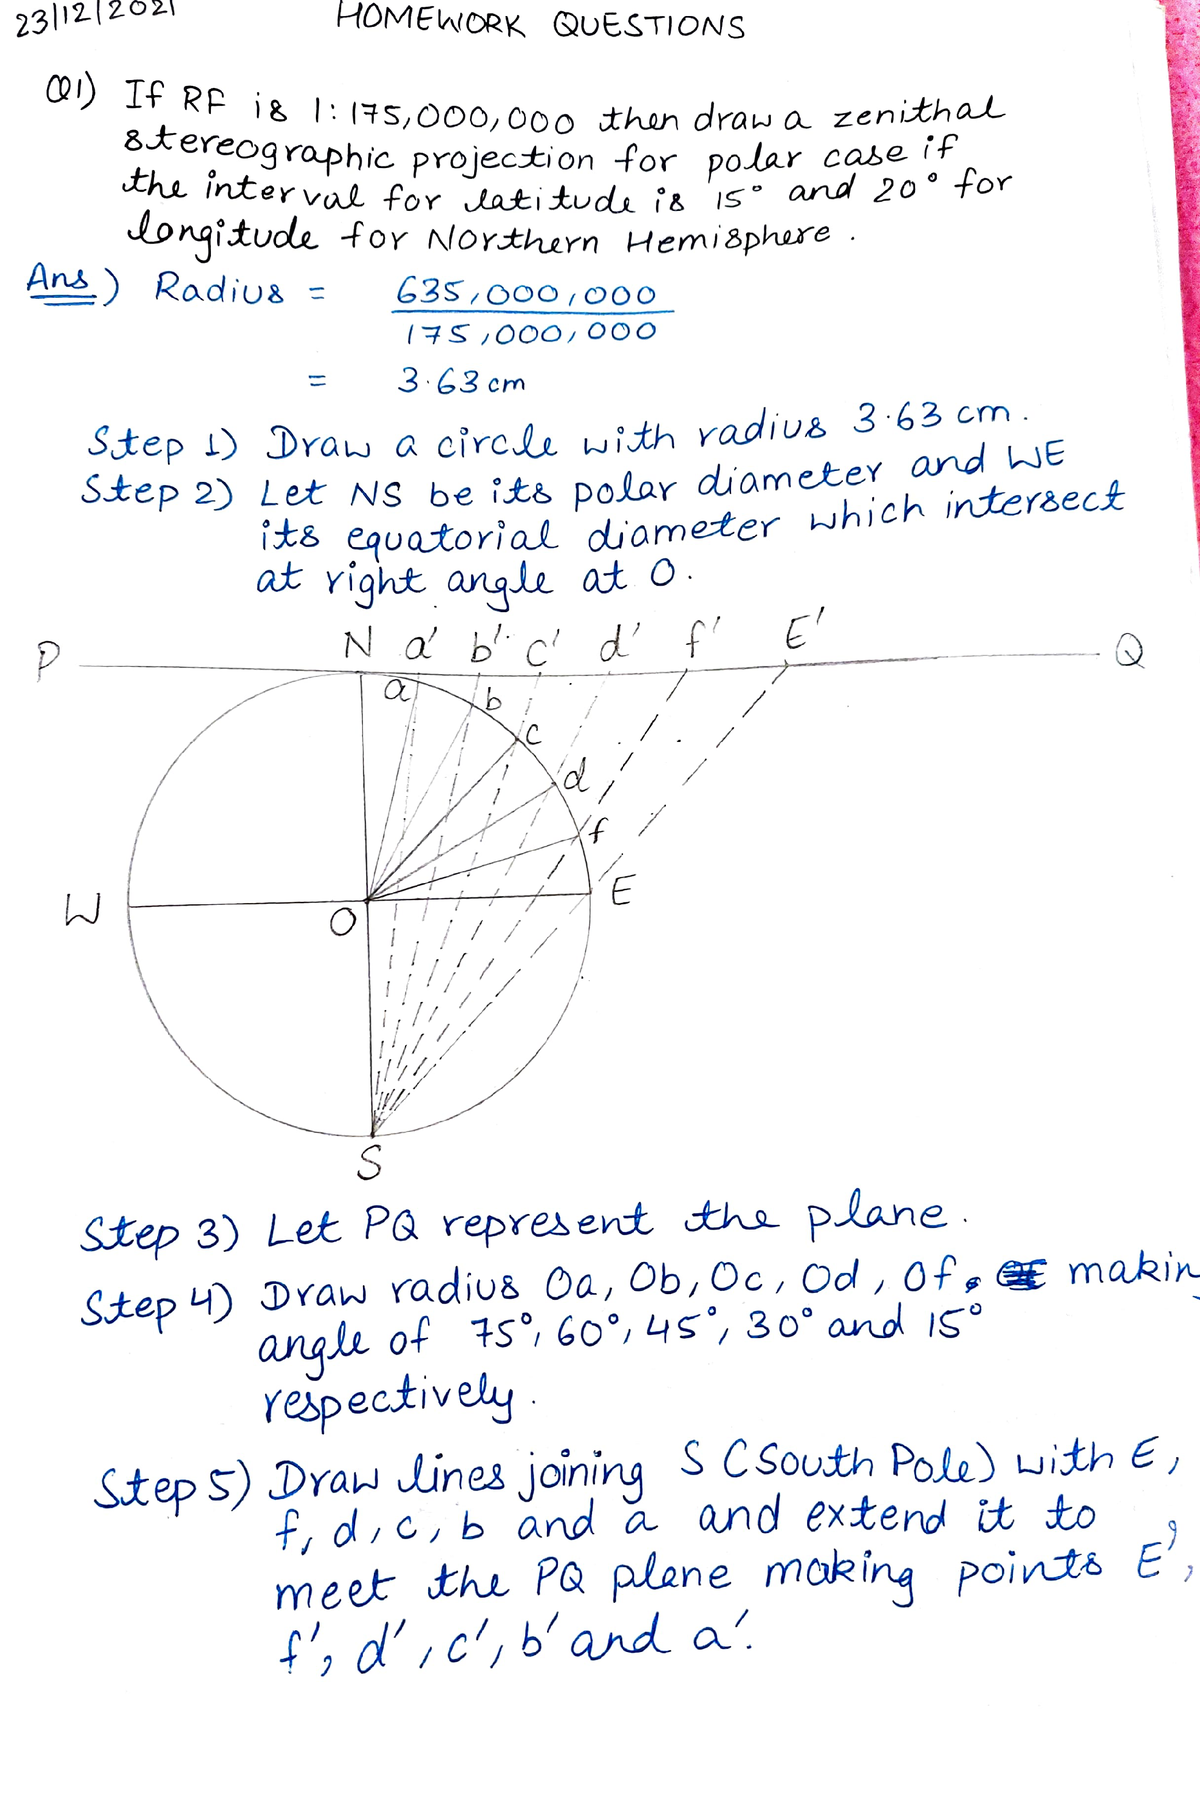 23/12/2021 HOMEWORK QUESTIONS
Q1) If RF is 1:175,000,000 then draw a zenithal
stereographic projection for polar case if
the interval for latitude is 15° and 20° for
longitude for Northern Hemisphere.
Ans) Radius = 635,000,000
175,000,000
= 3.63 cm
Step 1) Draw a circle with radius 3.63 cm.
Step 2) Let NS be its polar diameter and WE
its equatorial diameter which intersect
at right angle at O.
P N a' b' c' d' f' E' Q
a b
c
d
f
W O E
S
Step 3) Let PQ represent the plane.
Step 4) Draw radius Oa, Ob, Oc, Od, Of, makin
angle of 75°, 60°, 45°, 30° and 15°
respectively.
Step 5) Draw lines joining S (South Pole) with E,
f, d, c, b and a and extend it to
meet the PQ plane making points E',
f', d', c', b' and a'.